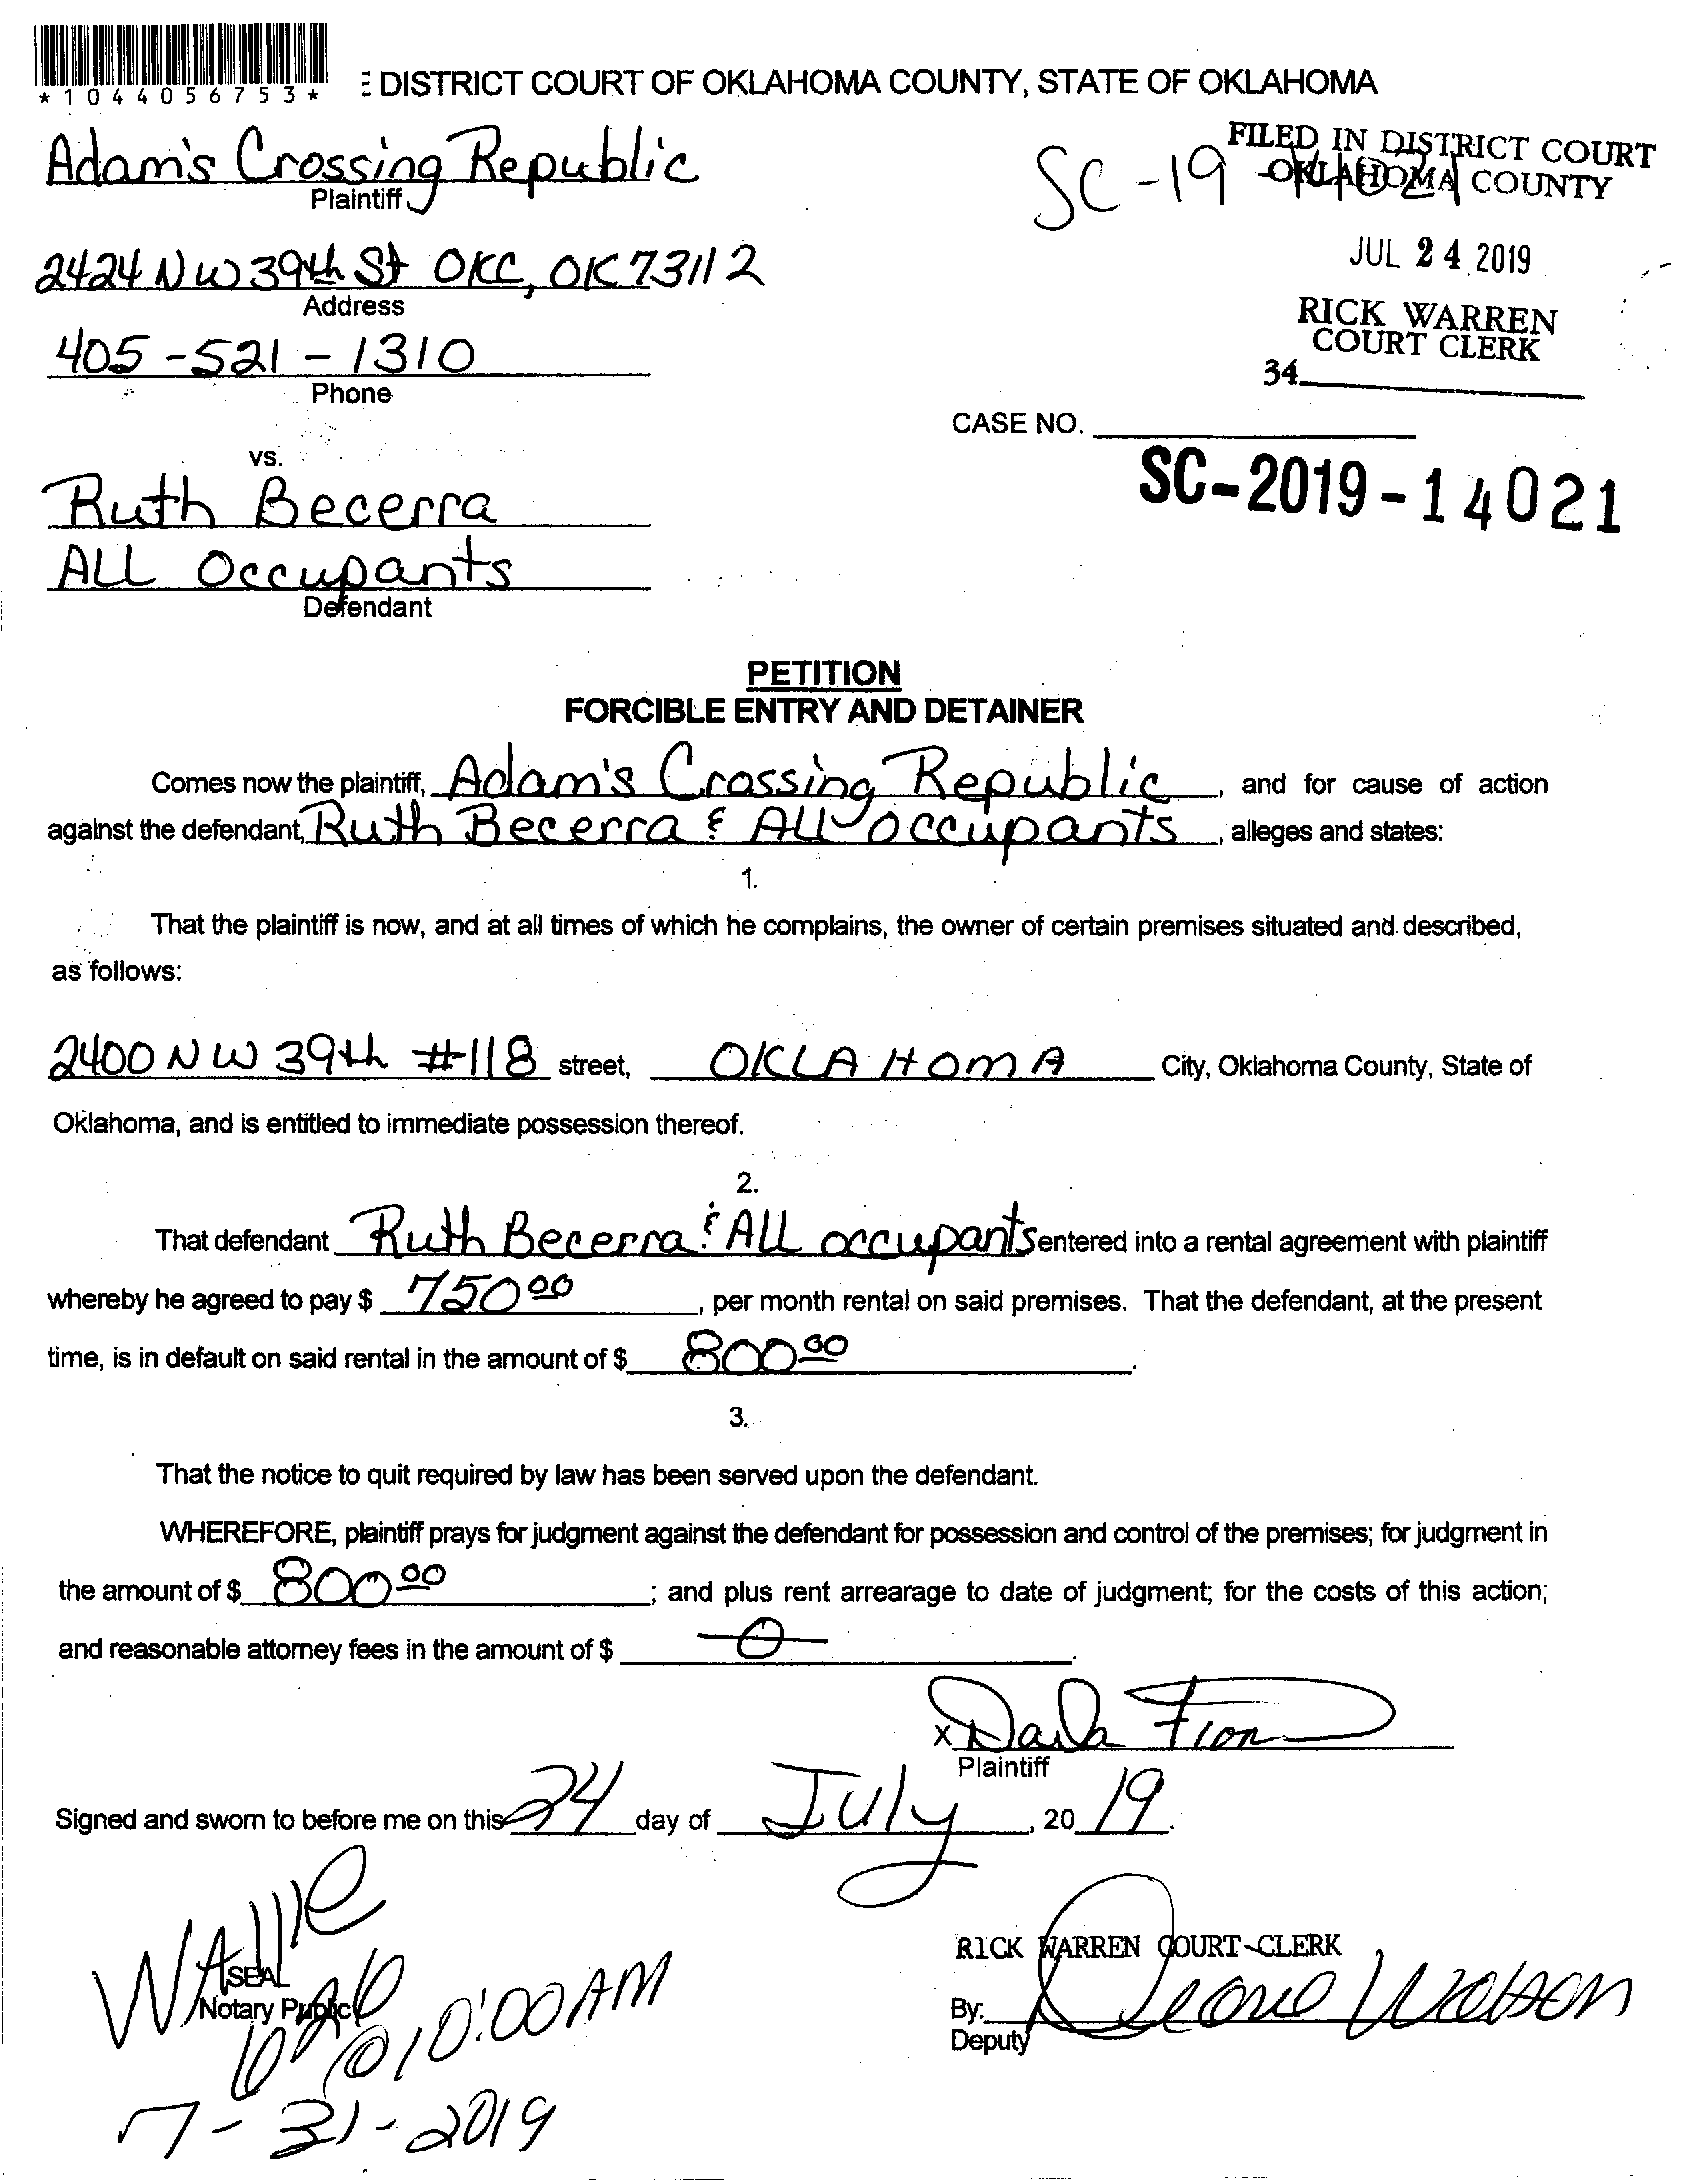 *1044056753*
E DISTRICT COURT OF OKLAHOMA COUNTY, STATE OF OKLAHOMA
Adam's Crossing Republic
Plaintiff
SC-19-14021
FILED IN DISTRICT COURT
OKLAHOMA COUNTY
2424 NW 39th St OKC, OK 73112
Address
JUL 24 2019
RICK WARREN
COURT CLERK
405-521-1310
Phone
34
CASE NO.
SC-2019-14021
vs.
Ruth Becerra
ALL Occupants
Defendant
PETITION
FORCIBLE ENTRY AND DETAINER
Comes now the plaintiff, Adam's Crossing Republic, and for cause of action
against the defendant, Ruth Becerra & All occupants, alleges and states:
1.
That the plaintiff is now, and at all times of which he complains, the owner of certain premises situated and described,
as follows:
2400 NW 39th #118 street, OKLAHOMA City, Oklahoma County, State of
Oklahoma, and is entitled to immediate possession thereof.
2.
That defendant Ruth Becerra & ALL occupants entered into a rental agreement with plaintiff
whereby he agreed to pay $ 750 00, per month rental on said premises. That the defendant, at the present
time, is in default on said rental in the amount of $ 800 00.
3.
That the notice to quit required by law has been served upon the defendant.
WHEREFORE, plaintiff prays for judgment against the defendant for possession and control of the premises; for judgment in
the amount of $ 800 00; and plus rent arrearage to date of judgment; for the costs of this action;
and reasonable attorney fees in the amount of $ 0.
x Darla
Plaintiff
Signed and sworn to before me on this 24 day of July, 20 19.
SEAL
Notary Public
@ 10:00 AM
7-31-2019
RICK WARREN COURT CLERK
By: Watson
Deputy